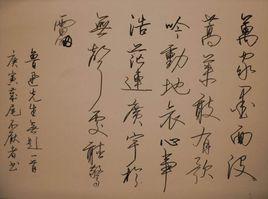 萬家墨面没
蒿萊敢有歌
吟動地哀心事
浩茫連廣宇於
無聲處聽驚
雷
魯迅先生無題一首
庚寅歲尾